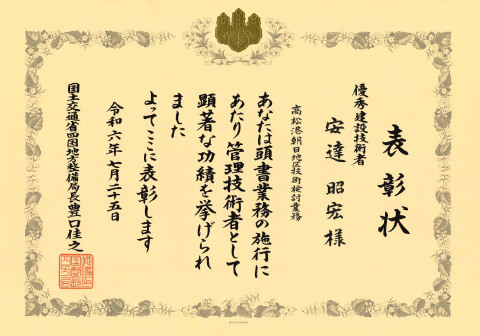 表彰状
優秀建設技術者
安達 昭宏 様
高松港朝日地区技術検討業務
あなたは頭書業務の施行に
あたり管理技術者として
顕著な功績を挙げられ
ました
よってここに表彰します
令和六年七月二十五日
国土交通省四国地方整備局長 豊口佳之